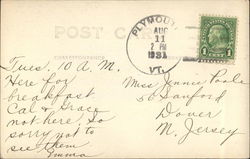 POST CARD
PLYMOUTH
AUG
11
2 PM
1931
VT.
1 1
Tues. 10 A.M.
Here for
breakfast
Cal & Grace
not here. So
sorry not to
see them
Emma
Miss Jennie
50 Sanford
Dover
N. Jersey